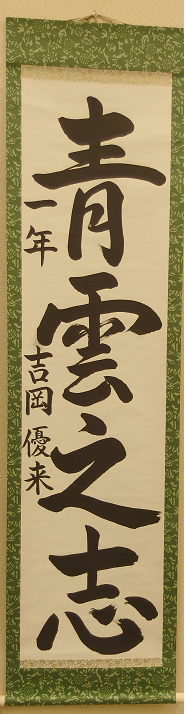 青雲之志
一年 吉岡 優来